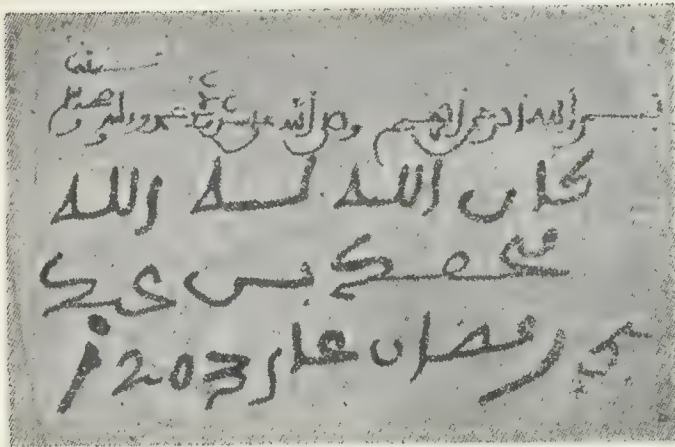 بسم الله الرحمن الرحيم وصلى الله على سيدنا محمد واله وصحبه
كان الله له الله
محمد بن عبد
في رمضان عام 1203